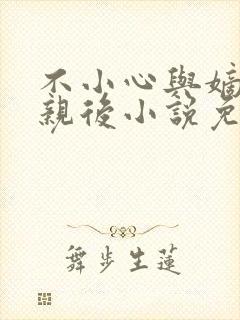 不小心與嫡
親後小說免
舞步生蓮